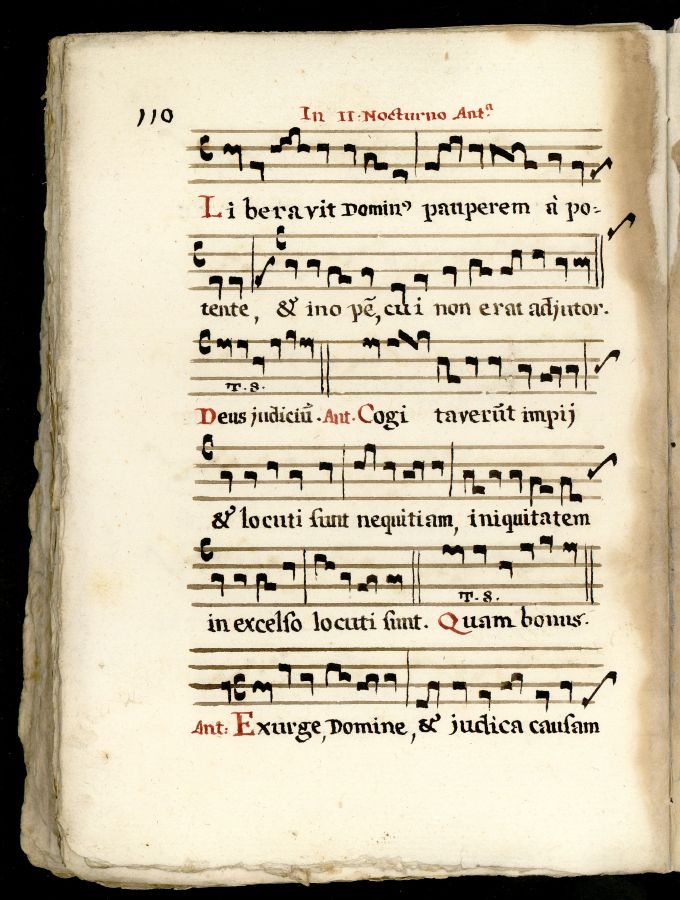 110 In II. Nocturno Antª.
Liberavit Dominꝰ pauperem à po-
tente, & inopẽ, cui non erat adjutor.
T. 8.
Deus judiciũ. Ant. Cogitaverũt impij
& locuti sunt nequitiam, iniquitatem
T. 8.
in excelso locuti sunt. Quam bonus.
Ant: Exurge, Domine, & judica causam